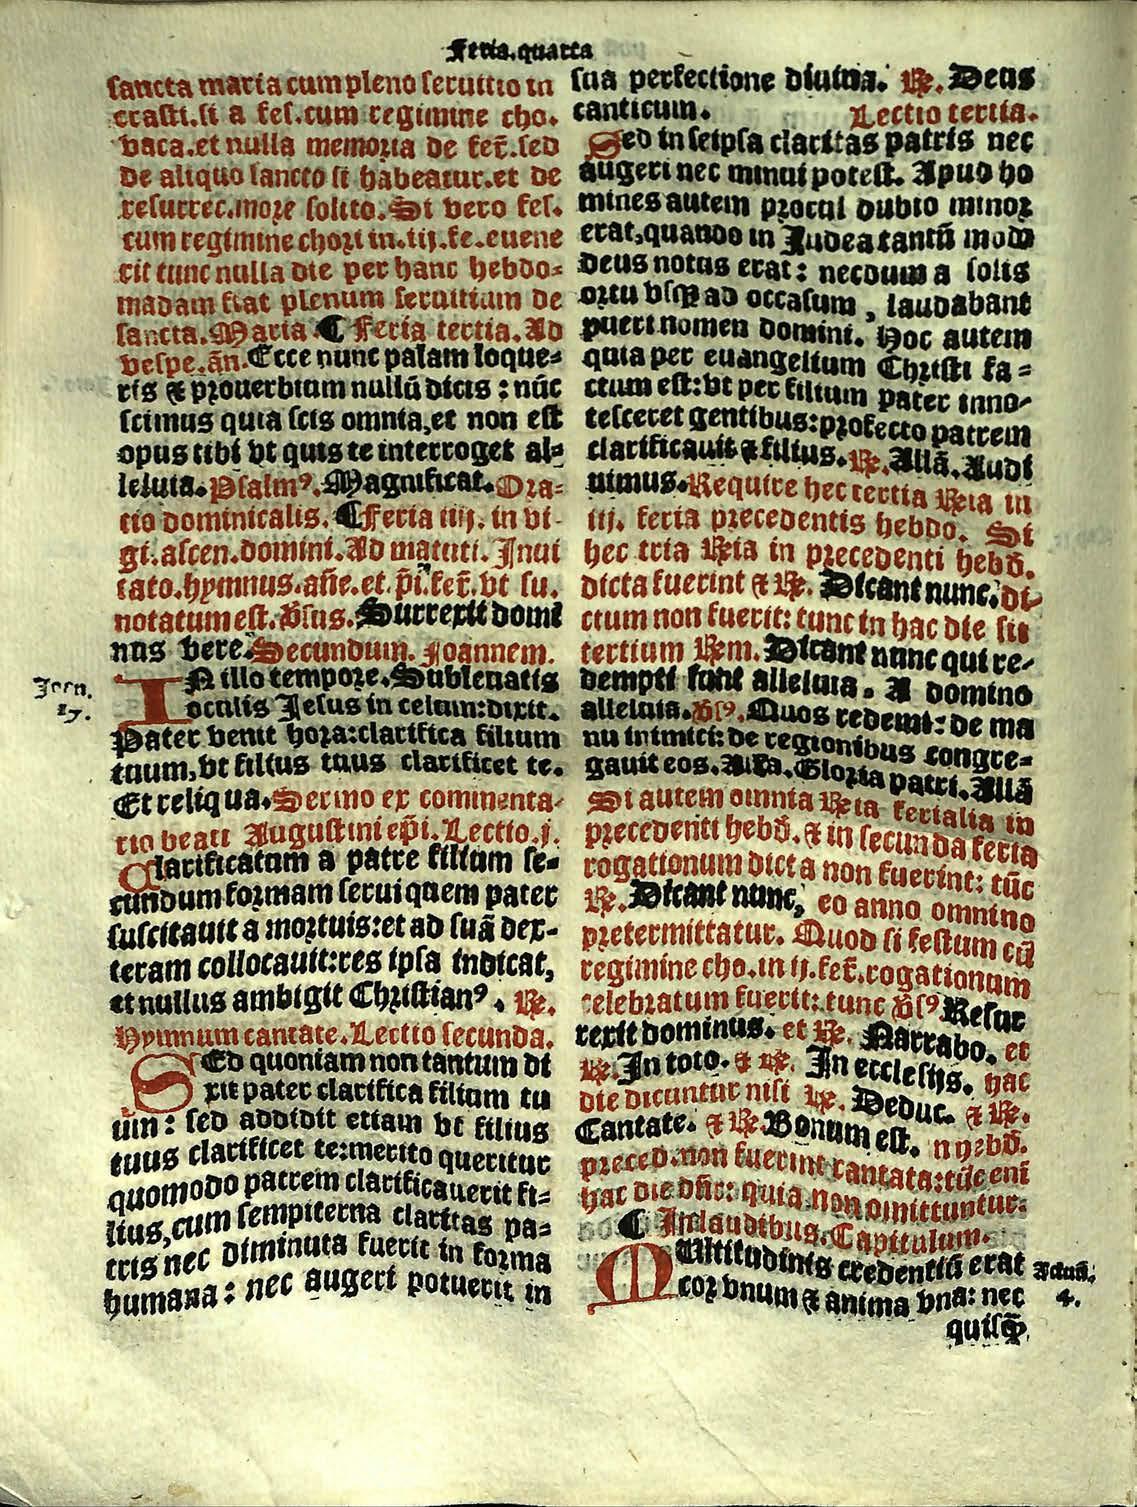 Feria.quarta
sancta maria cum pleno seruitio in
crasti.si a fes.cum regimine cho.
vaca.et nulla memoria de fer̄.sed
de aliquo sancto si habeatur.et de
resurrec.more solito. Si vero fes.
cum regimine chori in.iij.fe.euene
rit tunc nulla die per hanc hebdo=
madam fiat plenum seruitium de
sancta.Maria.¶ Feria tertia. Ad
vespe.an̄.Ecce nunc palam loque=
ris & prouerbium nullū dicis : nūc
scimus quia scis omnia,et non est
opus tibi vt quis te interroget al=
leluia.Psalmꝰ.Magnificat.Ora=
tio dominicalis. ¶Feria iiij. in vi-
gi.ascen.domini. Ad matuti. Inui
tato.hymnus.añe.et.p̄i.fer̄.vt su.
notatum est. V̄sus. Surrexit domi
nus vere. Secundum. Joannem.
Joan.
17.
IN illo tempore. Subleuatis
oculis Jesus in celum:dixit.
Pater venit hora:clarifica filium
tuum,vt filius tuus clarificet te.
Et reliqua.Sermo ex commenta-
rio beati Augustini ep̄i.Lectio.j.
Clarificatum a patre filium se=
cundum formam serui quem pater
suscitauit a mortuis:et ad suā dex-
teram collocauit:res ipsa indicat,
et nullus ambigit Christianꝰ. ℟.
Hymnum cantate. Lectio secunda.
SEd quoniam non tantum di
xit pater clarifica filium tu
ūm : sed addidit etiam vt filius
tuus clarificet te:merito queritur
quomodo patrem clarificauerit fi=
lius,cum sempiterna claritas pa=
tris nec diminuta fuerit in forma
humana : nec augeri potuerit in
sua perfectione diuina. ℟. Deus
canticum. Lectio tertia.
Sed in seipsa claritas patris nec
augeri nec minui potest. Apud ho
mines autem procul dubio minor
erat,quando in Judea tantū modo
deus notus erat : necdum a solis
ortu vsqꝫ ad occasum , laudabant
pueri nomen domini. Hoc autem
quia per euangelium Christi fa=
ctum est:vt per filium pater inno-
tesceret gentibus:profecto patrem
clarificauit & filius. ℟. Allā. Audi
uimus.Require hec tertia ℟ia in
iij. feria precedentis hebdo. Si
hec tria ℟ia in precedenti hebd̄.
dicta fuerint & ℟. Dicant nunc. di-
ctum non fuerit: tunc in hac die sit
tertium ℟m. Dicant nunc qui re-
dempti sunt alleluia. A domino
alleluia. V̄sꝰ.Quos redemit: de ma
nu inimici: de regionibus congre=
gauit eos. Alla. Gloria patri. Allā
Si autem omnia ℟ia ferialia in
precedenti hebd̄. & in secunda feria
rogationum dicta non fuerint: tūc
℟. Dicant nunc, eo anno omnino
pretermittatur. Quod si festum cū
regimine cho.in ij.fer̄.rogationum
celebratum fuerit: tunc V̄sꝰ Resur
rexit dominus. et ℟. Narrabo. et
℟. In toto. & ℟. In ecclesijs. hac
die dicuntur nisi ℟. Deduc. & ℟.
Cantate. & ℟.Bonum est. in hebd̄.
preced.non fuerint cantata:tūc enī
hac die dn̄r: quia non omittuntur.
¶ In laudibus. Capitulum.
MUltitudinis credentiū erat
cor vnum & anima vna: nec
Actuū.
4.
quisqꝫ